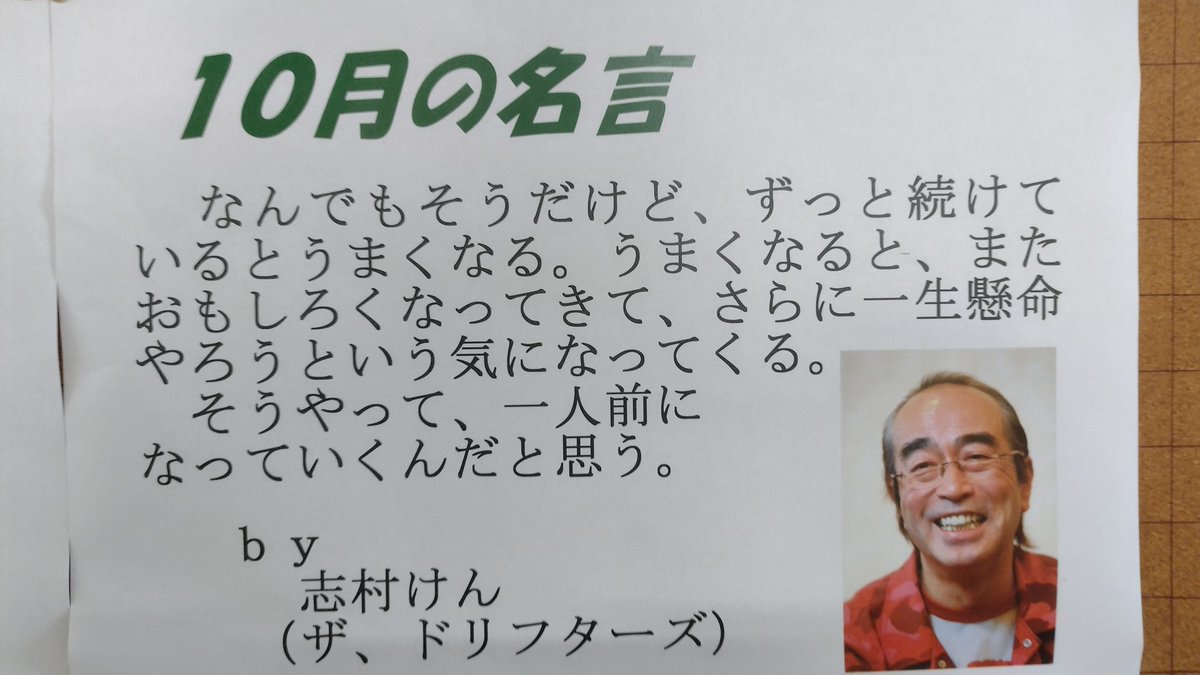 10月の名言
なんでもそうだけど、ずっと続けて
いるとうまくなる。うまくなると、また
おもしろくなってきて、さらに一生懸命
やろうという気になってくる。
そうやって、一人前に
なっていくんだと思う。
ｂｙ
志村けん
（ザ、ドリフターズ）